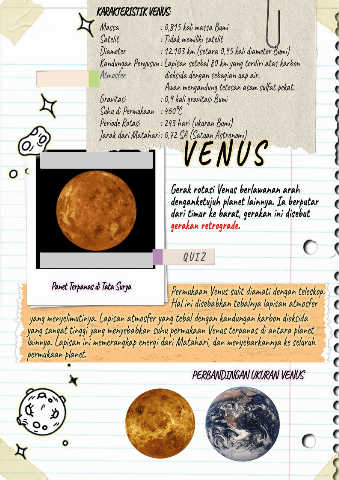 KARAKTERISTIK VENUS
Massa : 0,815 kali massa Bumi
Satelit : Tidak memiliki satelit
Diameter : 12.103 km (setara 0,95 kali diameter Bumi)
Kandungan Penyusun : Lapisan setebal 80 km yang terdiri atas karbon
Atmosfer dioksida dengan sebagian uap air.
Awan mengandung tetesan asam sulfat pekat.
Gravitasi : 0,9 kali gravitasi Bumi
Suhu di Permukaan : 460°C
Periode Rotasi : 243 hari (ukuran Bumi)
Jarak dari Matahari : 0,72 SA (Satuan Astronomi)
VENUS
Gerak rotasi Venus berlawanan arah
denganketujuh planet lainnya. Ia berputar
dari timur ke barat, gerakan ini disebut
gerakan retrograde.
QUIZ
Planet Terpanas di Tata Surya
Permukaan Venus sulit diamati dengan teleskop.
Hal ini disebabkan tebalnya lapisan atmosfer
yang menyelimutinya. Lapisan atmosfer yang tebal dengan kandungan karbon dioksida
yang sangat tinggi yang menyebabkan suhu permukaan Venus terpanas di antara planet
lainnya. Lapisan ini memerangkap energi dari Matahari, dan menyebarkannya ke seluruh
permukaan planet.
PERBANDINGAN UKURAN VENUS